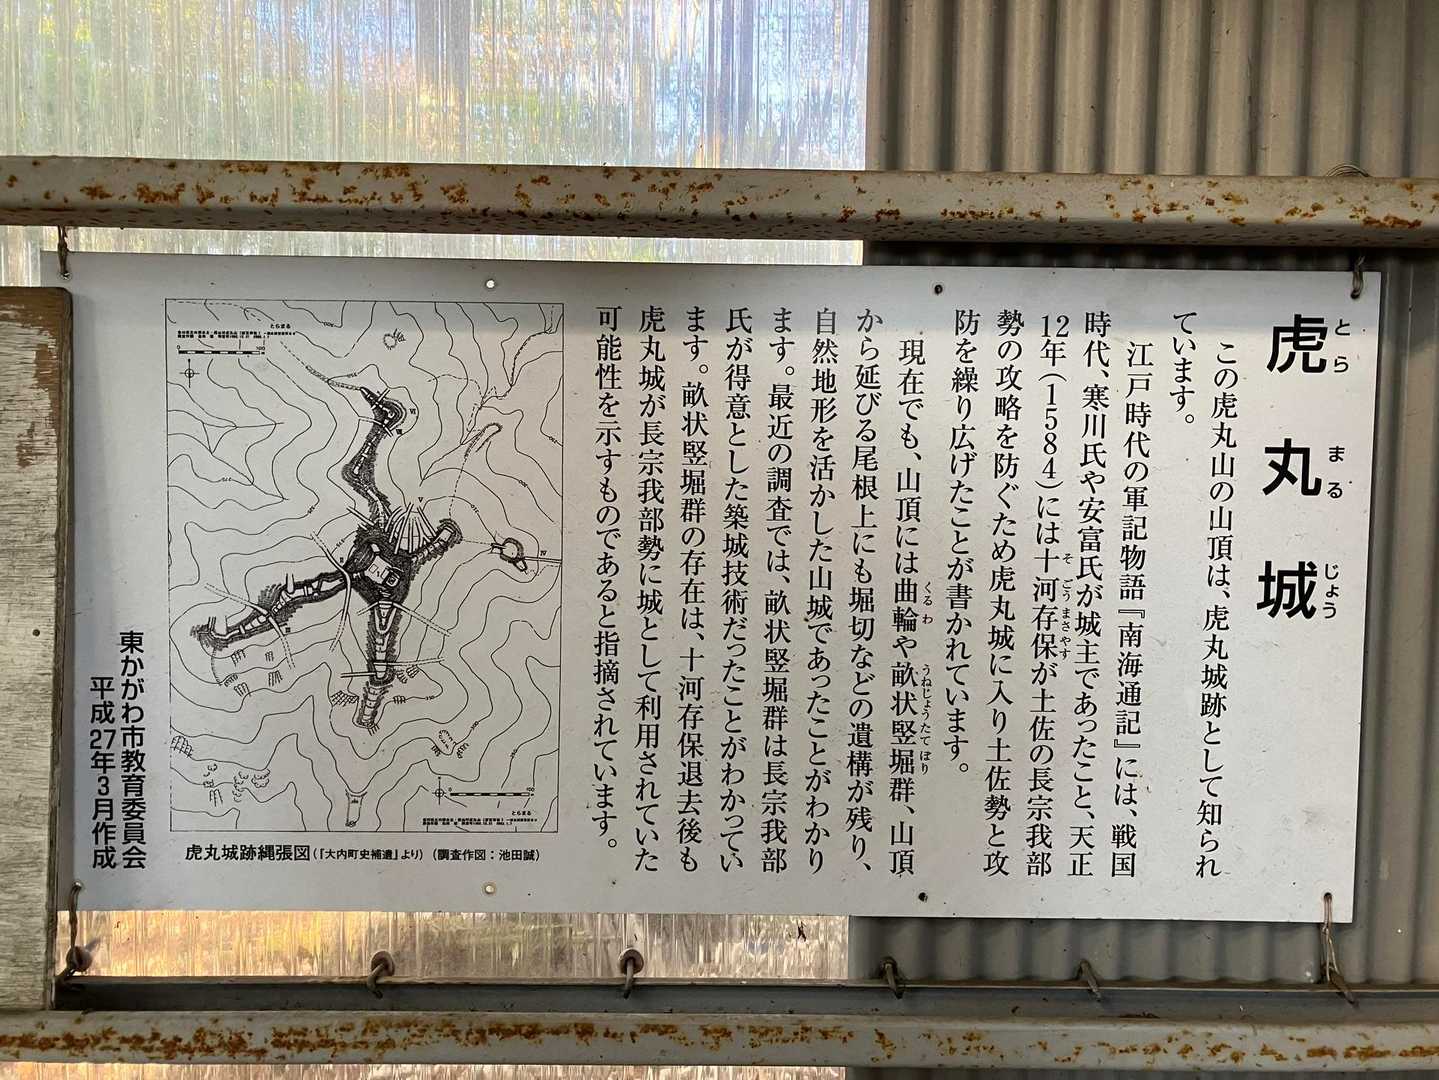 虎丸城
とらまるじょう
この虎丸山の山頂は、虎丸城跡として知られ
ています。
江戸時代の軍記物語『南海通記』には、戦国
時代、寒川氏や安富氏が城主であったこと、天正
12年(1584)には十河存保が土佐の長宗我部
そごうまさやす
勢の攻略を防ぐため虎丸城に入り土佐勢と攻
防を繰り広げたことが書かれています。
現在でも、山頂には曲輪や畝状竪堀群、山頂
くるわ
うねじょうたてぼり
から延びる尾根上にも堀切などの遺構が残り、
自然地形を活かした山城であったことがわかり
ます。最近の調査では、畝状竪堀群は長宗我部
氏が得意とした築城技術だったことがわかってい
ます。畝状竪堀群の存在は、十河存保退去後も
虎丸城が長宗我部勢に城として利用されていた
可能性を示すものであると指摘されています。
とらまる
とらまる
虎丸城跡縄張図(『大内町史補遺』より)(調査作図:池田誠)
東かがわ市教育委員会
平成27年3月作成